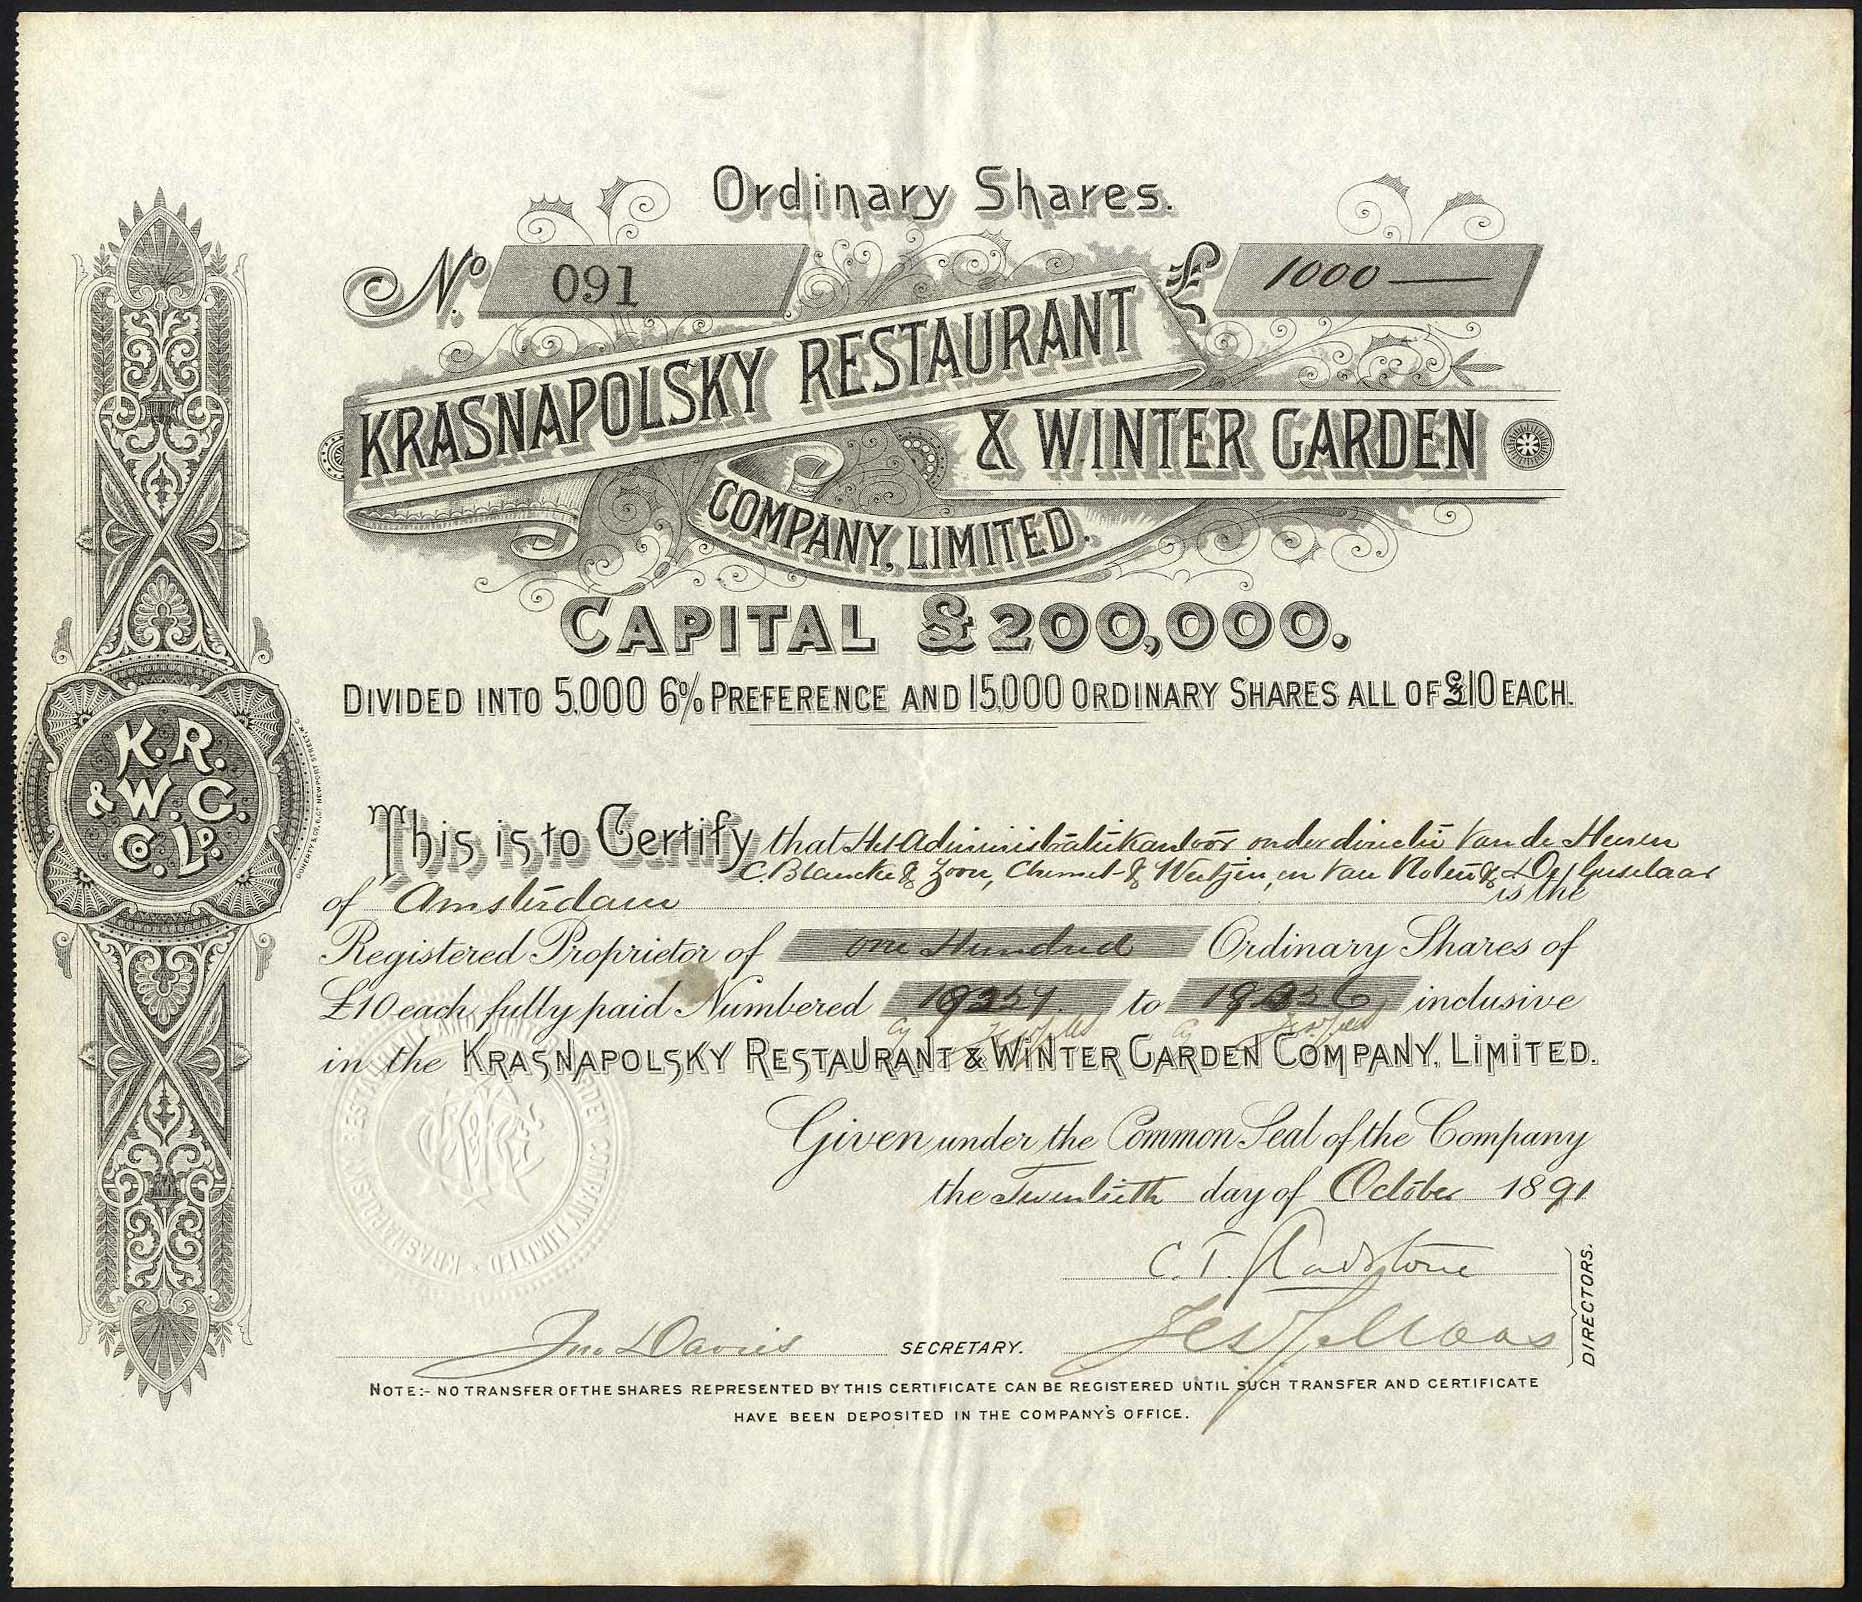 Ordinary Shares.
No. 091
£ 1000 —
KRASNAPOLSKY RESTAURANT
& WINTER GARDEN
COMPANY, LIMITED.
CAPITAL £200,000.
DIVIDED INTO 5,000 6% PREFERENCE AND 15,000 ORDINARY SHARES ALL OF £10 EACH.
K.R.
& W.G.
Co. Ld.
DOHERTY & CO.
This is to Certify that Het Administratiekantoor onder directie van de Heeren
C. Blancke & Zoon, & Weetjen, en van
of Amsterdam is the
Registered Proprietor of one Hundred Ordinary Shares of
£10 each fully paid Numbered to inclusive
in the KRASNAPOLSKY RESTAURANT & WINTER GARDEN COMPANY, LIMITED.
KRASNAPOLSKY RESTAURANT AND WINTER GARDEN COMPANY LIMITED
Given under the Common Seal of the Company
the Twentieth day of October 1891
C. T. Gladstone
DIRECTORS.
Jno Davies SECRETARY.
NOTE:- NO TRANSFER OF THE SHARES REPRESENTED BY THIS CERTIFICATE CAN BE REGISTERED UNTIL SUCH TRANSFER AND CERTIFICATE
HAVE BEEN DEPOSITED IN THE COMPANY'S OFFICE.